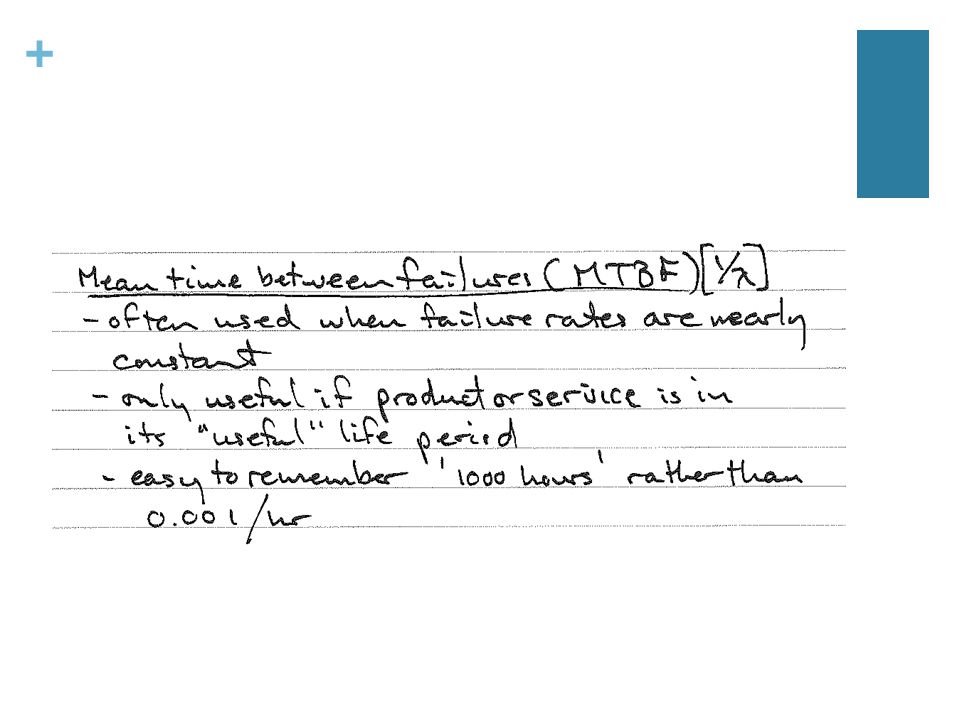 +
Mean time between failures (MTBF) [1/λ]
- often used when failure rates are nearly
constant
- only useful if product or service is in
its "useful" life period
- easy to remember '1000 hours' rather than
0.001/hr